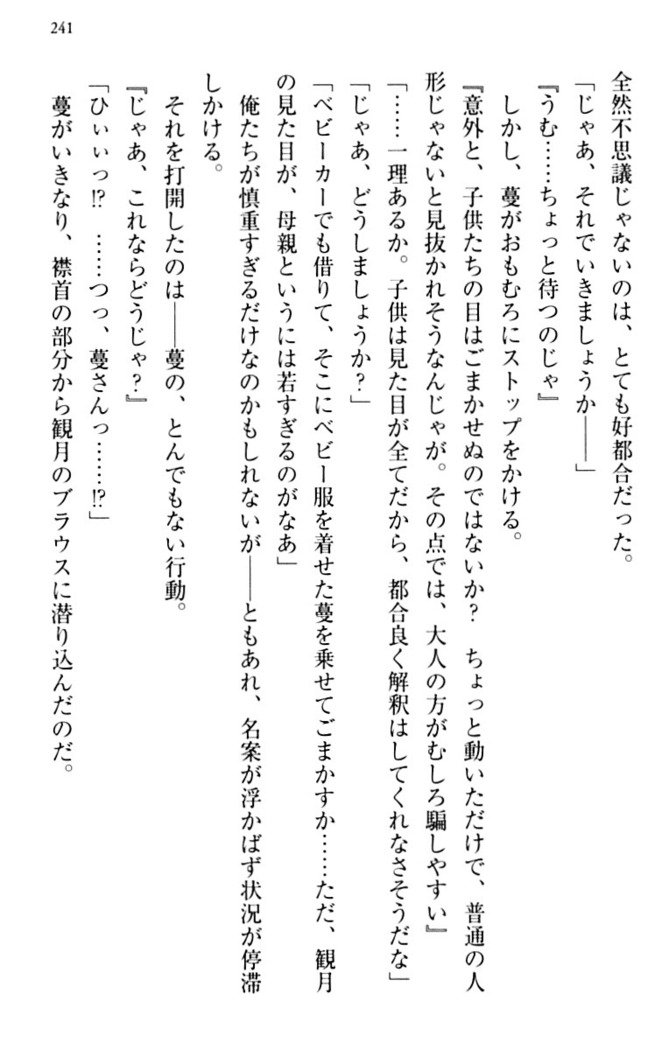 241
全然不思議じゃないのは、とても好都合だった。
「じゃあ、それでいきましょうか――」
『うむ……ちょっと待つのじゃ』
しかし、蔓がおもむろにストップをかける。
『意外と、子供たちの目はごまかせぬのではないか？　ちょっと動いただけで、普通の人
形じゃないと見抜かれそうなんじゃが。その点では、大人の方がむしろ騙しやすい』
「……一理あるか。子供は見た目が全てだから、都合良く解釈はしてくれなさそうだな」
「じゃあ、どうしましょうか？」
「ベビーカーでも借りて、そこにベビー服を着せた蔓を乗せてごまかすか……ただ、観月
の見た目が、母親というには若すぎるのがなあ」
俺たちが慎重すぎるだけなのかもしれないが――ともあれ、名案が浮かばず状況が停滞
しかける。
それを打開したのは――蔓の、とんでもない行動。
『じゃあ、これならどうじゃ？』
「ひぃぃっ!?　……つっ、蔓さんっ……!?」
蔓がいきなり、襟首の部分から観月のブラウスに潜り込んだのだ。